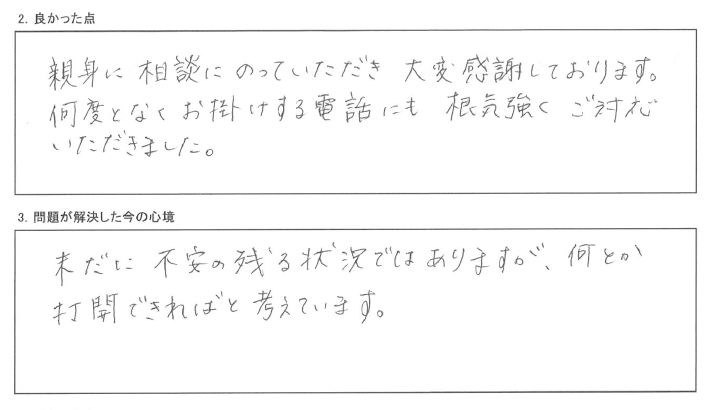 2. 良かった点
親身に相談にのっていただき 大変感謝しております。
何度となくお掛けする電話にも 根気強く ご対応
いただきました。
3. 問題が解決した今の心境
未だに 不安の残る状況ではありますが、何とか
打開できればと考えています。